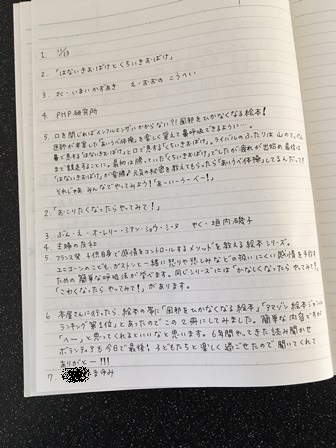 1. 12/13
2. 「はないきおばけとくちいきおばけ」
3. さく・いまいかずあき え・おおの こうへい
4. PHP研究所
5. 口を閉じればインフルエンザにかからない?!風邪をひかなくなる絵本!
医師が考案した「あいうべ体操」を楽しく覚えて鼻呼吸できるように…。
鼻で息する「はないきおばけ」と口で息する「くちいきおばけ」。ライバルのふたりは山のてっぺん
まで競走することに。最初は勝っていた「くちいきおばけ」でしたが疲れが出始め最後は
「はないきおばけ」が優勝♪元気の秘密を教えてもらったら「あいうべ体操」してるんだって?!
それじゃあみんなでやってみよう!「あーいーうーべー!」
2. 「おこりたくなったらやってみて!」
3. ぶん・え・オーレリー・シアン・ショウ・シーヌ やく・垣内磯子
4. 主婦の友社
5. フランス発 子供自身で感情をコントロールするメソッドを教える絵本シリーズ。
ユニコーンのこども、ガストンと一緒に怒りや悲しみなどの扱いにくい感情を手放す
ための簡単な呼吸法が学べます。同じシリーズには「かなしくなったらやってみて!」
「こわくなったらやってみて!」があります。
6. 本屋さんに行ったら、絵本の帯に「風邪をひかなくなる絵本」「アマゾン絵本ジャンル
ランキング第1位」とあったのでこの2冊にしてみました。簡単な内容ですが
「へー」と思ってくれるといいなと思います。6年間やってきた読み聞かせ
ボランティアも今日で最後!子どもたちと楽しく過ごせたので聞いてくれて
ありがとー!!!
7. まゆみ